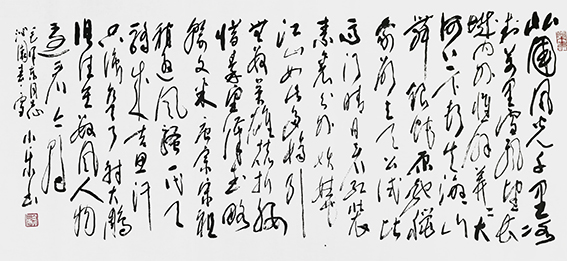 北国风光千里冰
封万里雪飘望长
城内外惟余莽々大
河上下顿失滔々山
舞银蛇原驰蜡
象欲与天公试比
高须晴日看红装
素裹分外妖娆
江山如此多娇引
无数英雄竞折腰
惜秦皇汉武略
输文采唐宗宋祖
稍逊风骚一代天
骄成吉思汗
只识弯弓射大雕
俱往矣数风流人物
还看今朝
毛泽东同志
沁园春雪 小东书